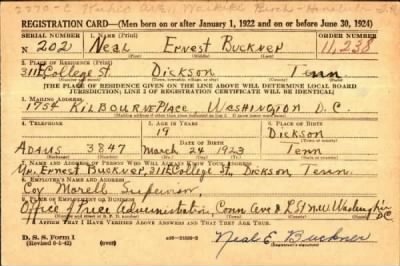 REGISTRATION CARD—(Men born on or after January 1, 1922 and on or before June 30, 1924)
SERIAL NUMBER 1. NAME (Print) ORDER NUMBER
202 Neal Ernest Buckner 11,238
(First) (Middle) (Last)
2. PLACE OF RESIDENCE (Print)
311 College St. Dickson Tenn
THE PLACE OF RESIDENCE GIVEN ON THE LINE ABOVE WILL DETERMINE LOCAL BOARD
JURISDICTION; LINE 2 OF REGISTRATION CERTIFICATE WILL BE IDENTICAL
3. MAILING ADDRESS
1754 KILBOURNE PLACE, WASHINGTON D.C.
4. TELEPHONE 5. AGE IN YEARS 6. PLACE OF BIRTH
19 Dickson
DATE OF BIRTH
ADAMS 3847 March 24 1923 Tenn
7. NAME AND ADDRESS OF PERSON WHO WILL ALWAYS KNOW YOUR ADDRESS
Mr. Ernest Buckner, 311 College St, Dickson, Tenn.
8. EMPLOYER'S NAME AND ADDRESS
Coy Morell
9. PLACE OF EMPLOYMENT OR BUSINESS
Office of Price Administration, Conn Ave & R St NW Washington
DC
I AFFIRM THAT I HAVE VERIFIED ABOVE ANSWERS AND THAT THEY ARE TRUE.
D. S. S. Form 1
(Revised 6-1-42) (over)
Neal E. Buckner